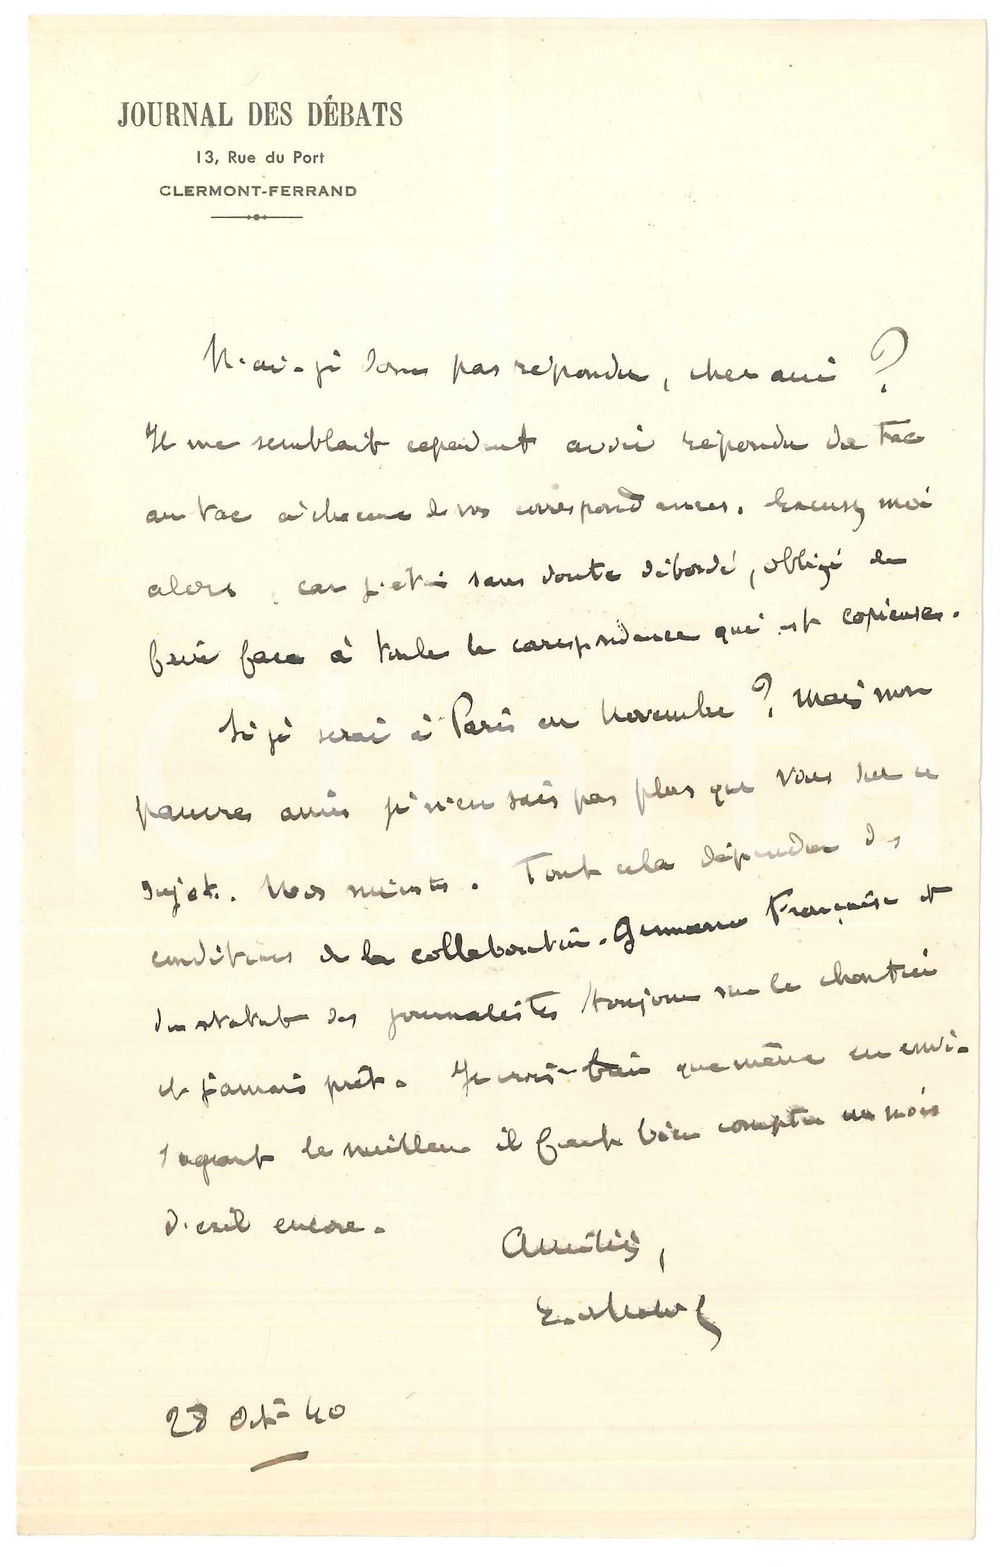 JOURNAL DES DÉBATS
13, Rue du Port
CLERMONT-FERRAND
N'ai-je donc pas répondu, cher ami ?
Il me semblait cependant avoir répondu du tac
au tac à chacune de vos correspondances. Excusez moi
alors, car j'étais sans doute débordé, obligé de
faire face à toute la correspondance qui est copieuse.
Si je serai à Paris en Novembre ? Mais mon
pauvre ami je n'en sais pas plus que vous sur ce
sujet. Nos ministres. Tout cela dépendra des
conditions de la collaboration Germano Française et
du statut des journalistes toujours sur le chantier
et jamais prêt. Je crois bien que même en envi-
sageant le meilleur il faut bien compter un mois
d'exil encore.
Amitiés,
28 Oct. 40